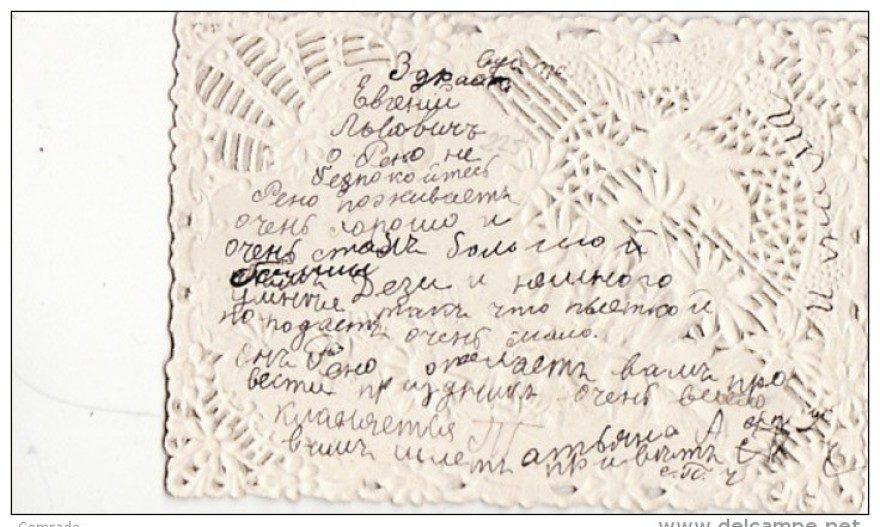 Здравст
вуйте
Евгеній
Львовичъ
о Рено не
безпокойтесь
Рено поживаетъ
очень хорошо и
очень сталъ большой
Дези и немного
такъ что плеткой
попадаетъ очень мало.
Рено желаетъ вамъ про
вести праздникъ очень весело
Кланяется Татьяна А
вамъ шлетъ приветъ
www.delcampe.net
Comrade